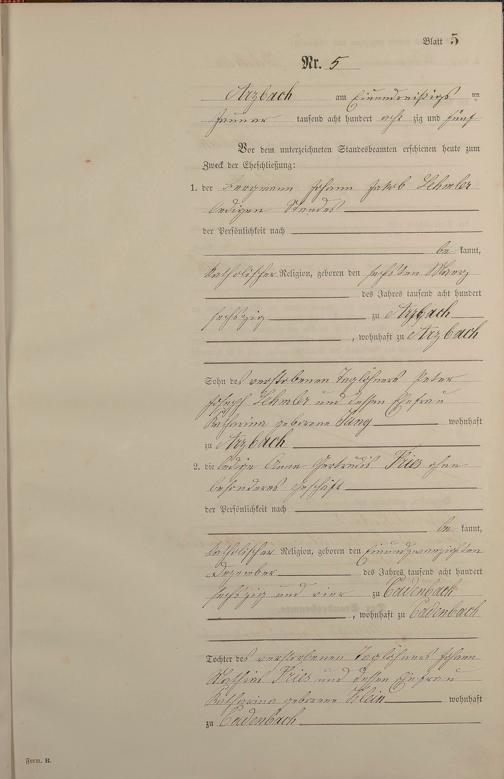 Blatt 5
Nr. 5
Arzbach am Einunddreißigs ten
Januar tausend acht hundert acht zig und fünf
Vor dem unterzeichneten Standesbeamten erschienen heute zum
Zweck der Eheschließung:
1. der Bergmann Johann Jakob
ledigen Standes
der Persönlichkeit nach
be kannt,
katholischer Religion, geboren den sechsten März
des Jahres tausend acht hundert
sechszig zu Arzbach
, wohnhaft zu Arzbach
Sohn des verstorbenen Taglöhners Peter
Joseph und dessen Ehefrau
Katharina geborene Jung wohnhaft
zu Arzbach
2. die ledige Anna Gertrudis Fries ohne
besonderes Geschäft
der Persönlichkeit nach
be kannt,
katholischer Religion, geboren den Einundzwanzigsten
Dezember des Jahres tausend acht hundert
sechszig und vier zu Cadenbach
, wohnhaft zu Cadenbach
Tochter des verstorbenen Taglöhners Johann
Mathias Fries und dessen Ehefrau
Katharina geborene Klein wohnhaft
zu Cadenbach
Form. B.